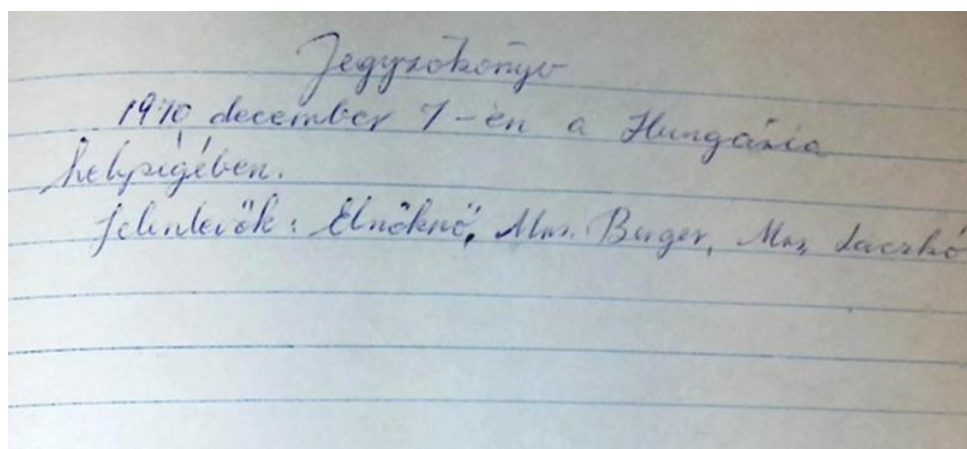 Jegyzőkönyv
1970 december 7-én a Hungária
helyiségében.
Jelenlevők: Elnöknő, Mrs. Burger, Mrs. Laczkó